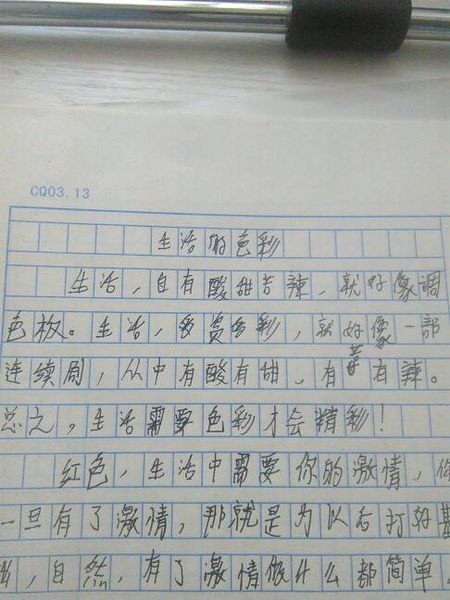 CQ03.13
生活的色彩
生活,自有酸甜苦辣,就好像调
色板。生活,多资多彩,就好像一部
连续剧,从中有酸有甜、有苦有辣。
总之,生活需要色彩才会精彩!
红色,生活中需要你的激情,你
一旦有了激情,那就是为以后打好基
出,自然,有了激情做什么都简单。